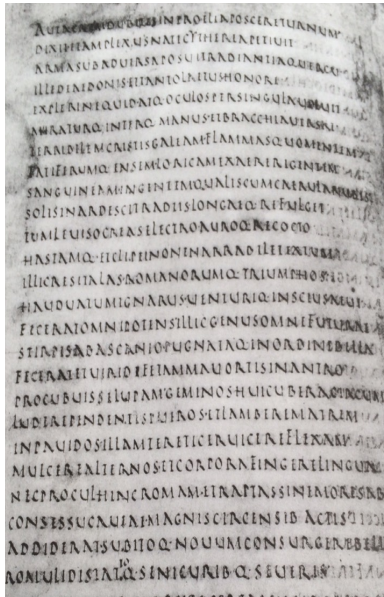 AUTACREMDUBITESINPROELIAPOSCERETURNUM
DIXITETAMPLEXUSNATICYTHEREAPETIUIT
ARMASUBADUERSAPOSUITRADIANTIAQUERCU
ILLEDEAEDONISETTANTOLAETUSHONORE
EXPLERINEQUIDATQOCULOSPERSINGULAUOLUIT
MIRATURQ·INTERQ·MANUSETBRACCHIAUERSAT
TERRIBILEMCRISTISGALEAMFLAMMASQUOMENTEM
FATIFERUMQ·ENSEMLORICAMEXAERERIGENTEM
SANGUINEAMINGENTEMQUALISCUMCAERULANUBES
SOLISINARDESCITRADIISLONGAEQ·REFULGET
TUMLEUISOCREASELECTROAUROQ·RECOCTO
HASTAMQ·ETCLIPEINONINARRABILETEXTUM
ILLICRESITALAS·ROMANORUMQ·TRIUMPHOS
HAUDUATUMIGNARUS·UENTURIQ·INSCIUSAEUI
FECERATOMNIPOTENSILLICGENUSOMNEFUTURAE
STIRPISABASCANIO·PUGNATAQ·INORDINEBELLA
FECERATETUIRIDEFETAMMAUORTISINANTRO
PROCUBUISSELUPAMGEMINOSHUICUBERACIRCUM
LUDEREPENDENTISPUEROS·ETLAMBEREMATREM
INPAUIDOSILLAMTERETICERUICEREFLEXAM
MULCEREALTERNOS·ETCORPORAFINGERELINGUA
NECPROCULHINCROMAM·ETRAPTASSINEMORESAB
CONSESSUCAUEAE·MAGNISCIRCENSIB·ACTIS
ADDIDERATSUBITOQ·NOUUMCONSURGEREBELL
ROMULIDISTATIOQ·SENICURIBQ·SEUERIS